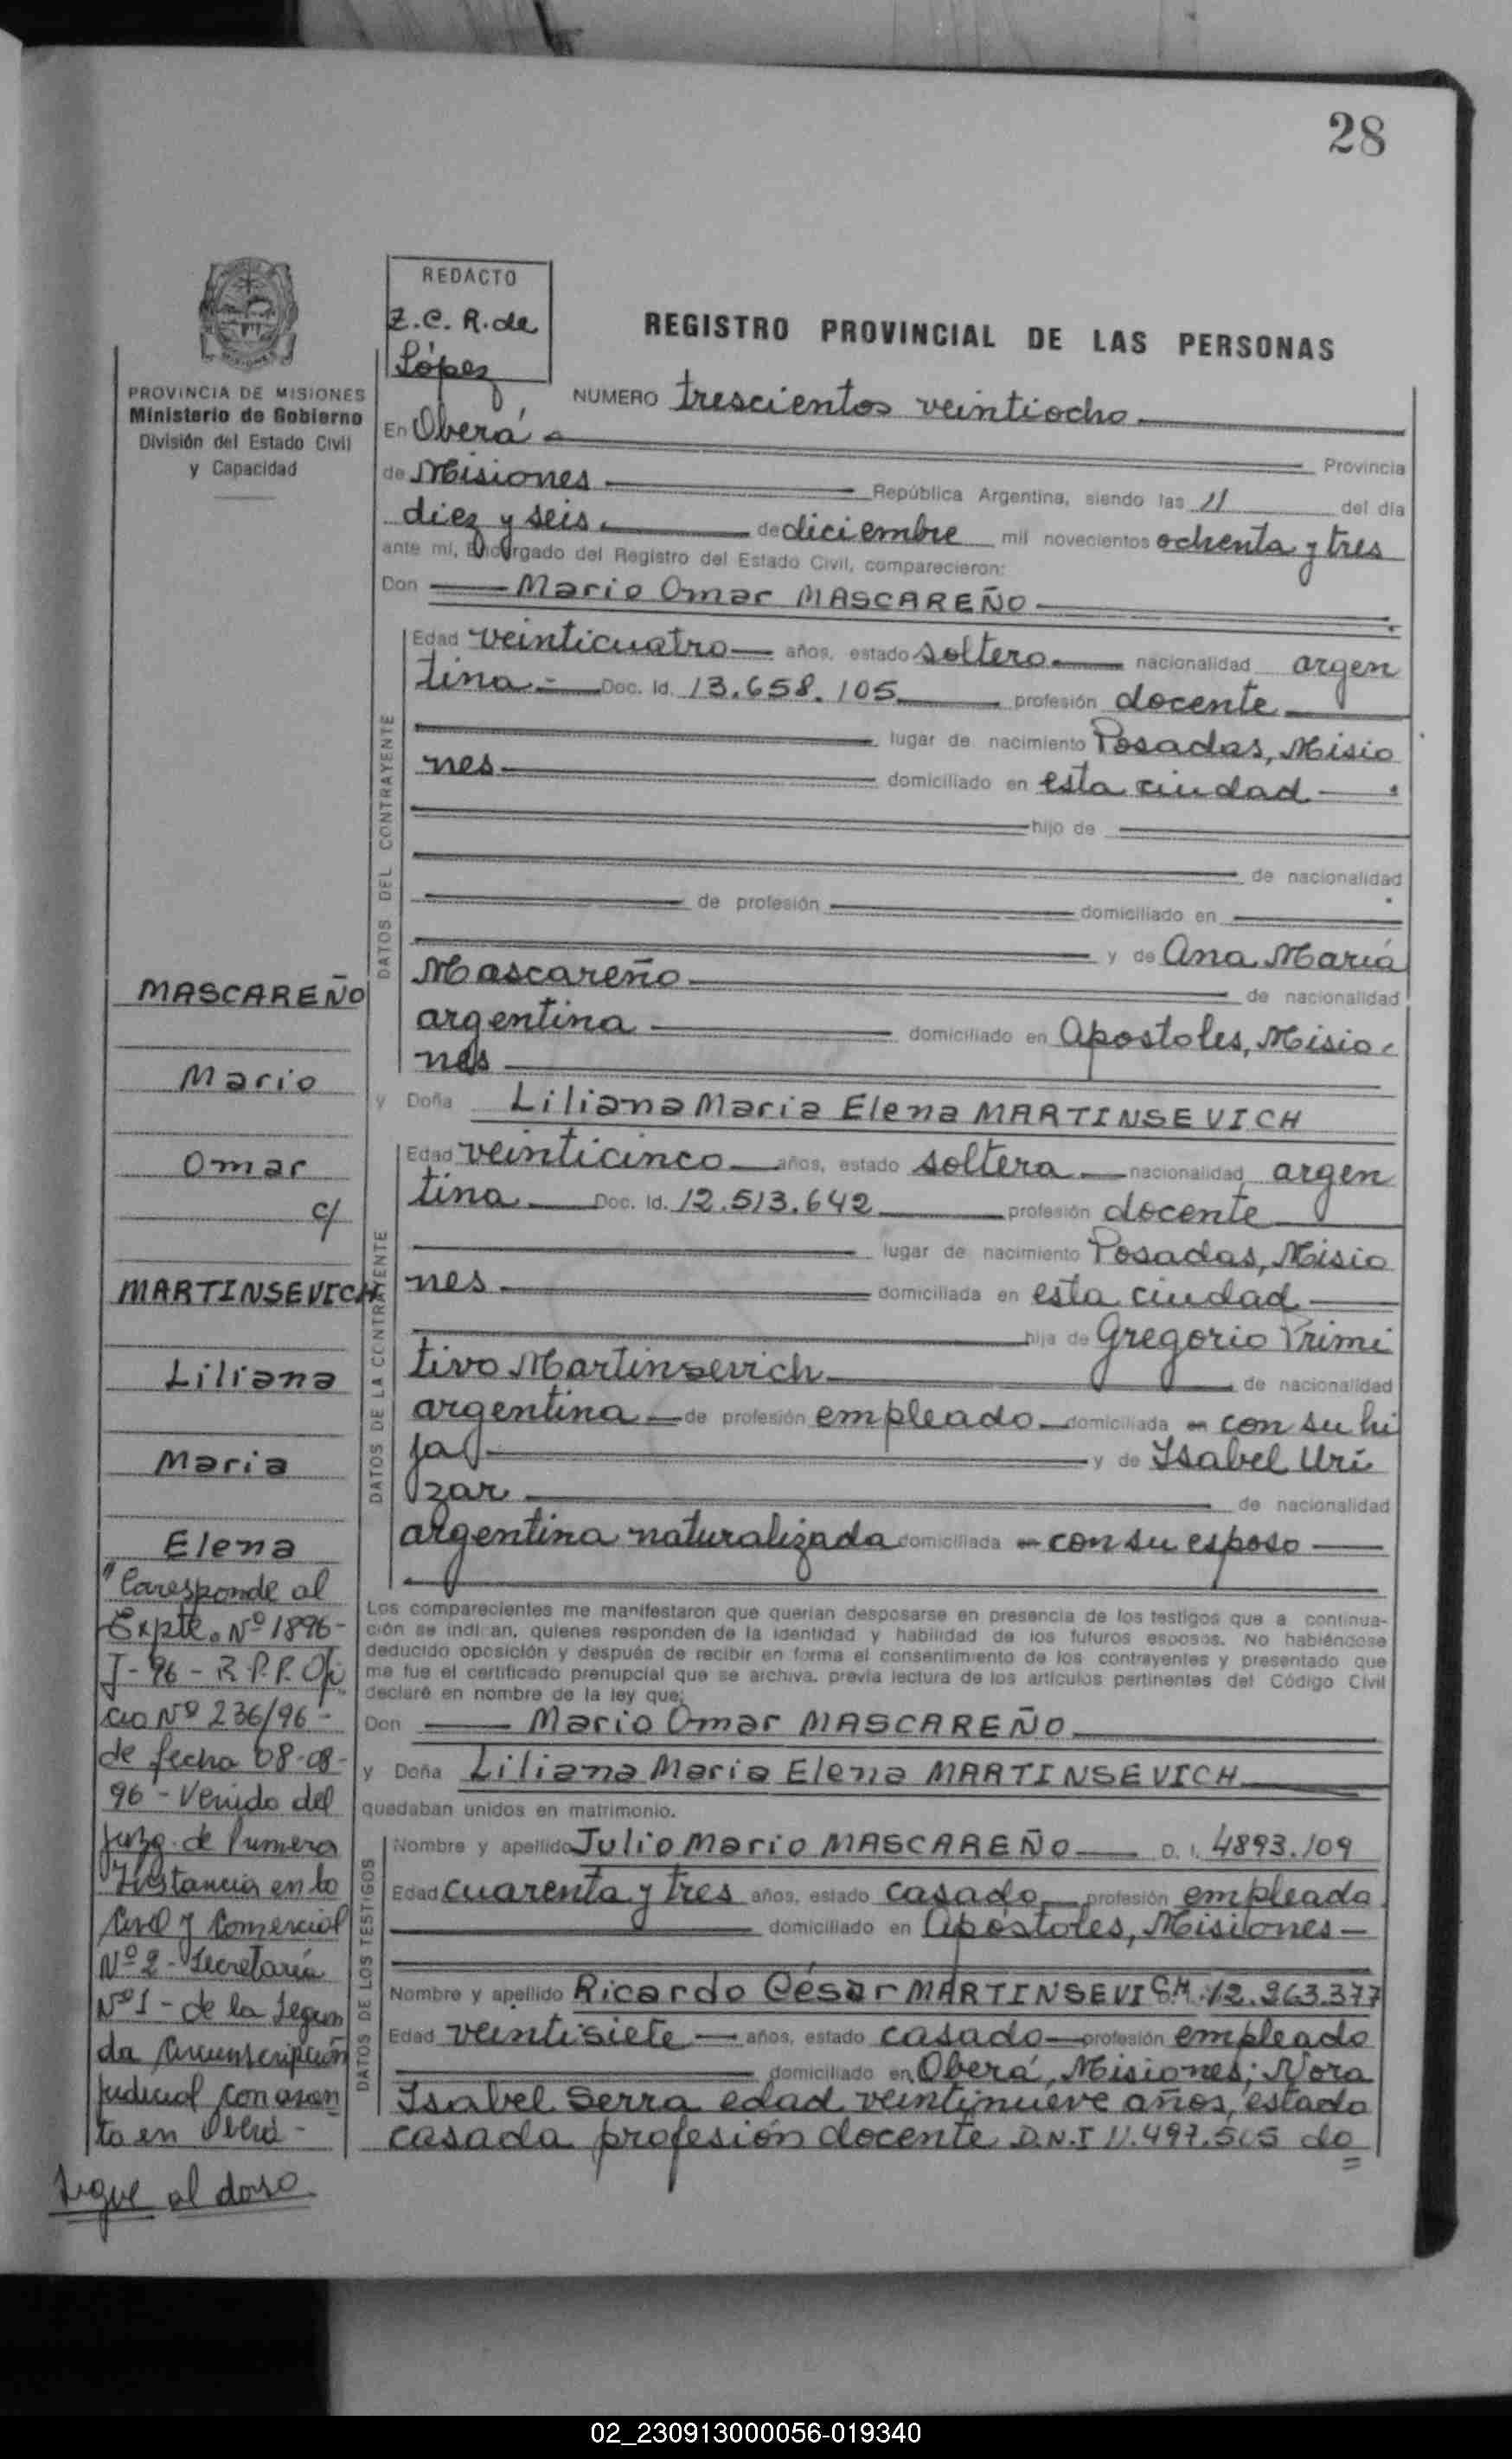 28
REDACTO
Z.C. R. de
López
REGISTRO PROVINCIAL DE LAS PERSONAS
PROVINCIA DE MISIONES
Ministerio de Gobierno
División del Estado Civil
y Capacidad
NUMERO trescientos veintiocho
En Oberá Provincia
de Misiones República Argentina, siendo las 11 del día
diez y seis de diciembre mil novecientos ochenta y tres
ante mí, Encargado del Registro del Estado Civil, comparecieron:
Don Mario Omar MASCAREÑO
DATOS DEL CONTRAYENTE
Edad veinticuatro años, estado soltero nacionalidad argen
tina Doc. Id. 13.658.105 profesión docente
lugar de nacimiento Posadas, Misio
nes domiciliado en esta ciudad
hijo de
de nacionalidad
de profesión domiciliado en
y de Ana María
Mascareño de nacionalidad
argentina domiciliado en Apostoles, Misio
nes
y Doña Liliana Maria Elena MARTINSEVICH
DATOS DE LA CONTRAYENTE
Edad veinticinco años, estado soltera nacionalidad argen
tina Doc. Id. 12.513.642 profesión docente
lugar de nacimiento Posadas, Misio
nes domiciliada en esta ciudad
hija de Gregorio Primi
tivo Martinsevich de nacionalidad
argentina de profesión empleado domiciliada en con su hi
ja y de Isabel Uri
zar de nacionalidad
argentina naturalizada domiciliada en con su esposo
Los comparecientes me manifestaron que querían desposarse en presencia de los testigos que a continua-
ción se indican, quienes responden de la identidad y habilidad de los futuros esposos. No habiéndose
deducido oposición y después de recibir en forma el consentimiento de los contrayentes y presentado que
me fue el certificado prenupcial que se archiva, previa lectura de los artículos pertinentes del Código Civil
declaré en nombre de la ley que;
Don Mario Omar MASCAREÑO
y Doña Liliana Maria Elena MARTINSEVICH
quedaban unidos en matrimonio.
DATOS DE LOS TESTIGOS
Nombre y apellido Julio Mario MASCAREÑO D. I. 4893.109
Edad cuarenta y tres años, estado casado profesión empleado
domiciliado en Apóstoles, Misiones
Nombre y apellido Ricardo César MARTINSEVICH 12.263.377
Edad veintisiete años, estado casado profesión empleado
domiciliado en Oberá, Misiones; Nora
Isabel Serra edad veintinueve años, estado
casada profesión docente D.N.I 11.497.505 do
MASCAREÑO
Mario
Omar
c/
MARTINSEVICH
Liliana
Maria
Elena
"Corresponde al
Expte. Nº 1896-
J-96-R.P.P. Ofi
cio Nº 236/96-
de fecha 08-08-
96-Venido del
Juzg. de Primera
Instancia en lo
Civil y Comercial
Nº 2-Secretaría
Nº 1-de la Segun
da Circunscripción
Judicial con asien
to en Oberá-
Sigue al dorso
02_230913000056-019340